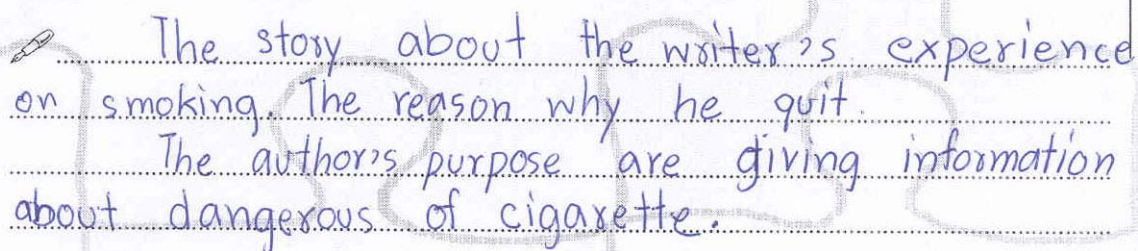 The story about the writer's experience
on smoking. The reason why he quit.
The author's purpose are giving information
about dangerous of cigarette.